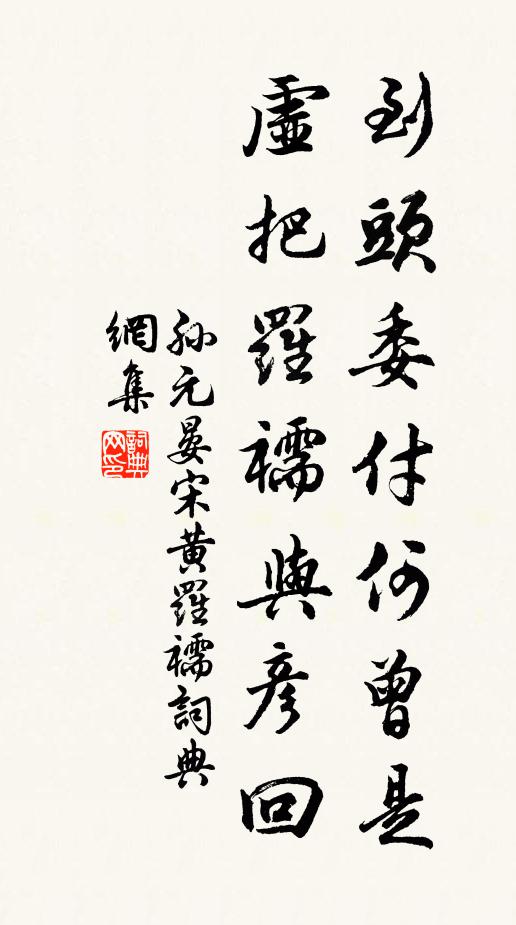 到頭委付何曾是
虛把羅襦與彥回
孫元晏宋黃羅襦詞典
網集
詞典
网印